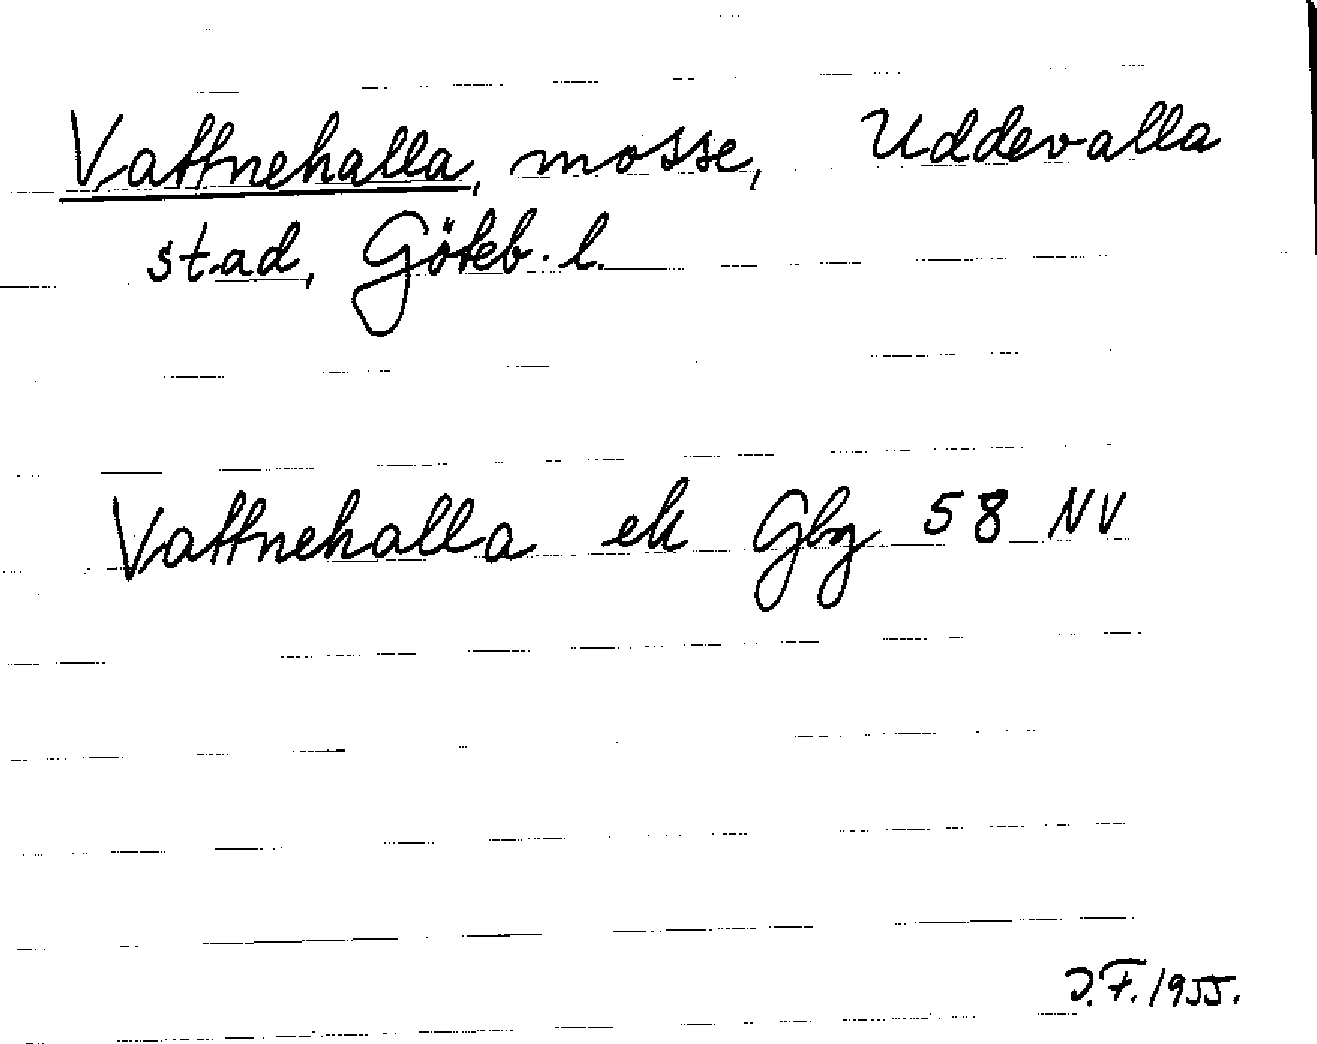 Vattnehalla, mosse, Uddevalla
stad, Göteb. l.
Vattnehalla ek Gbg 58 NV
J.F. 1955.